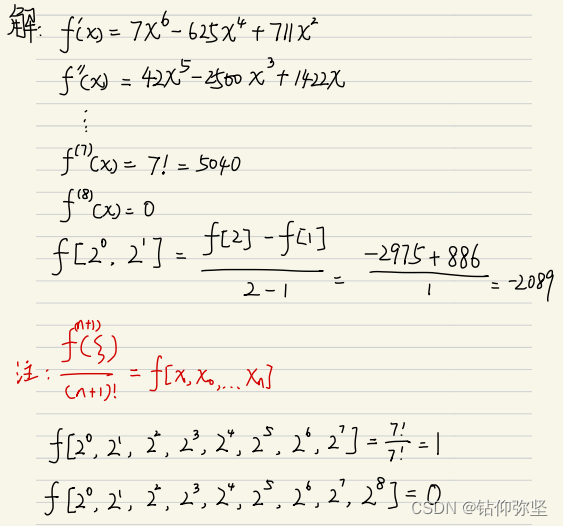 解: f'(x) = 7x⁶ - 625x⁴ + 711x²
f''(x) = 42x⁵ - 2500x³ + 1422x
⋮
f⁽⁷⁾(x) = 7! = 5040
f⁽⁸⁾(x) = 0
f[2⁰, 2¹] = (f[2] - f[1]) / (2 - 1) = (-2975 + 886) / 1 = -2089
注: f⁽ⁿ⁺¹⁾(ξ) / (n+1)! = f[x, x₀, ... xₙ]
f[2⁰, 2¹, 2², 2³, 2⁴, 2⁵, 2⁶, 2⁷] = 7!/7! = 1
f[2⁰, 2¹, 2², 2³, 2⁴, 2⁵, 2⁶, 2⁷, 2⁸] = 0
CSDN @钻仰弥坚